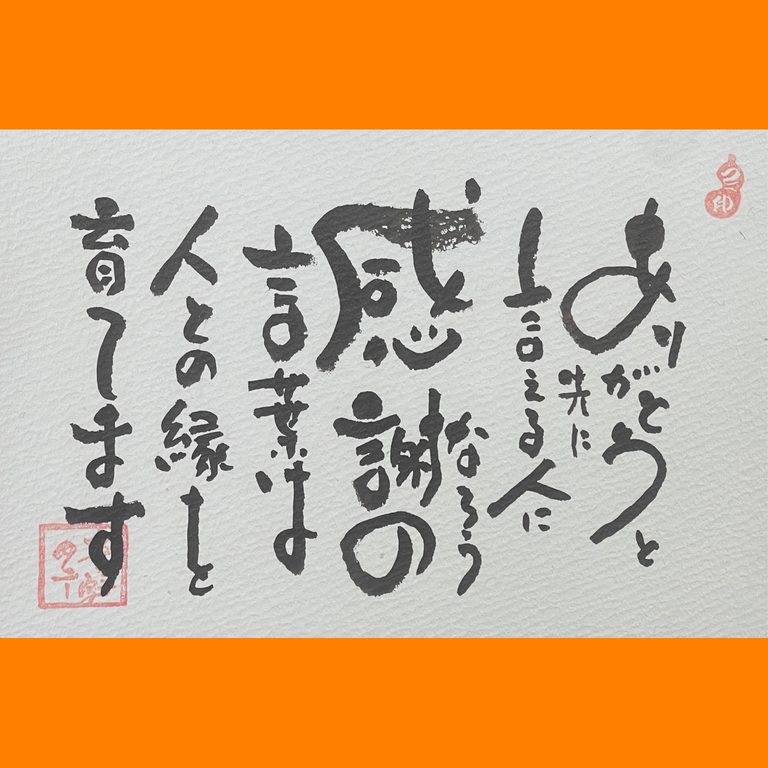 ありがとうと
先に
言える人に
なろう
感謝の
言葉は
人との縁を
育てます